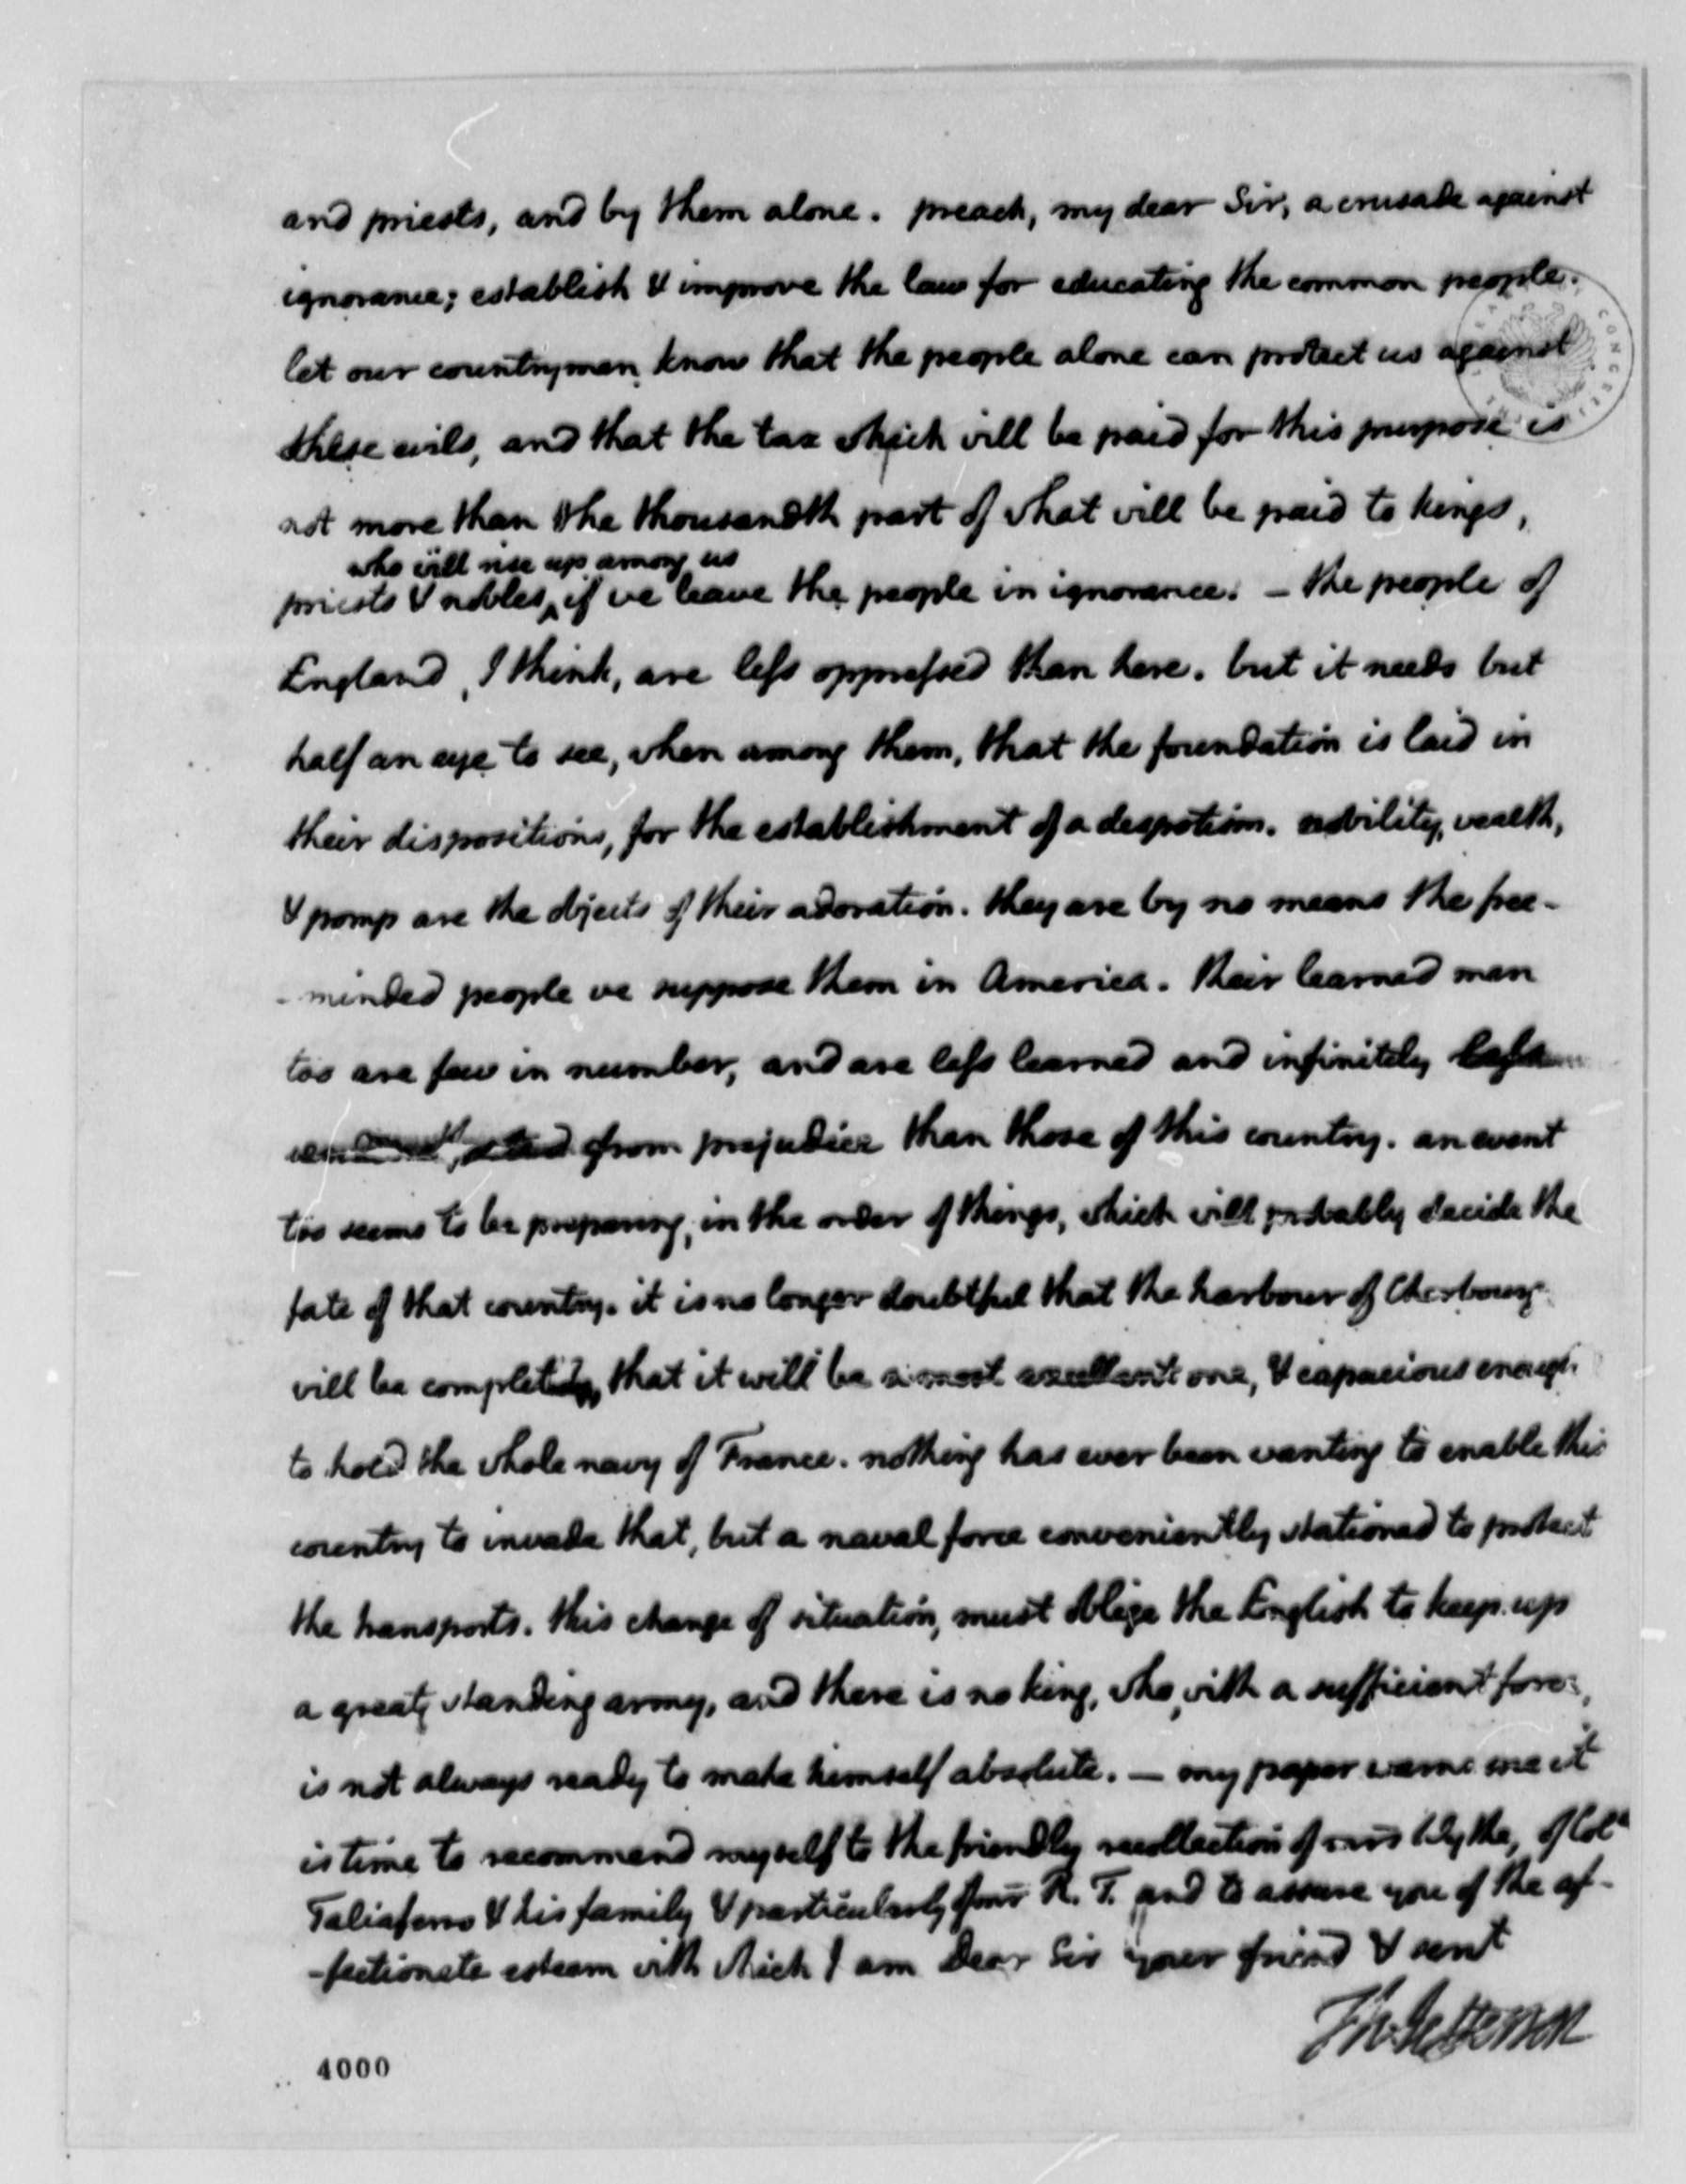 and priests, and by them alone. preach, my dear Sir, a crusade against
ignorance; establish & improve the law for educating the common people.
let our countrymen know that the people alone can protect us against
these evils, and that the tax which will be paid for this purpose is
not more than the thousandth part of what will be paid to kings,
who will rise up among us
priests & nobles if we leave the people in ignorance. - the people of
England, I think, are less oppressed than here. but it needs but
half an eye to see, when among them, that the foundation is laid in
their dispositions, for the establishment of a despotism. nobility, wealth,
& pomp are the objects of their adoration. they are by no means the free-
-minded people we suppose them in America. their learned men
too are few in number, and are less learned and infinitely less
from prejudice than those of this country. an event
too seems to be preparing, in the order of things, which will probably decide the
fate of that country. it is no longer doubtful that the harbour of Cherbourg
will be complete, that it will be a most excellent one, & capacious enough
to hold the whole navy of France. nothing has ever been wanting to enable this
country to invade that, but a naval force conveniently stationed to protect
the transports. this change of situation, must oblige the English to keep up
a great standing army, and there is no king, who, with a sufficient force,
is not always ready to make himself absolute. — my paper warns me it
is time to recommend myself to the friendly recollection of mrs Wythe, of Colo
Taliaferro & his family & particularly of mr R. T. and to assure you of the af-
-fectionate esteem with which I am Dear Sir your friend & servt
Th: Jefferson
4000